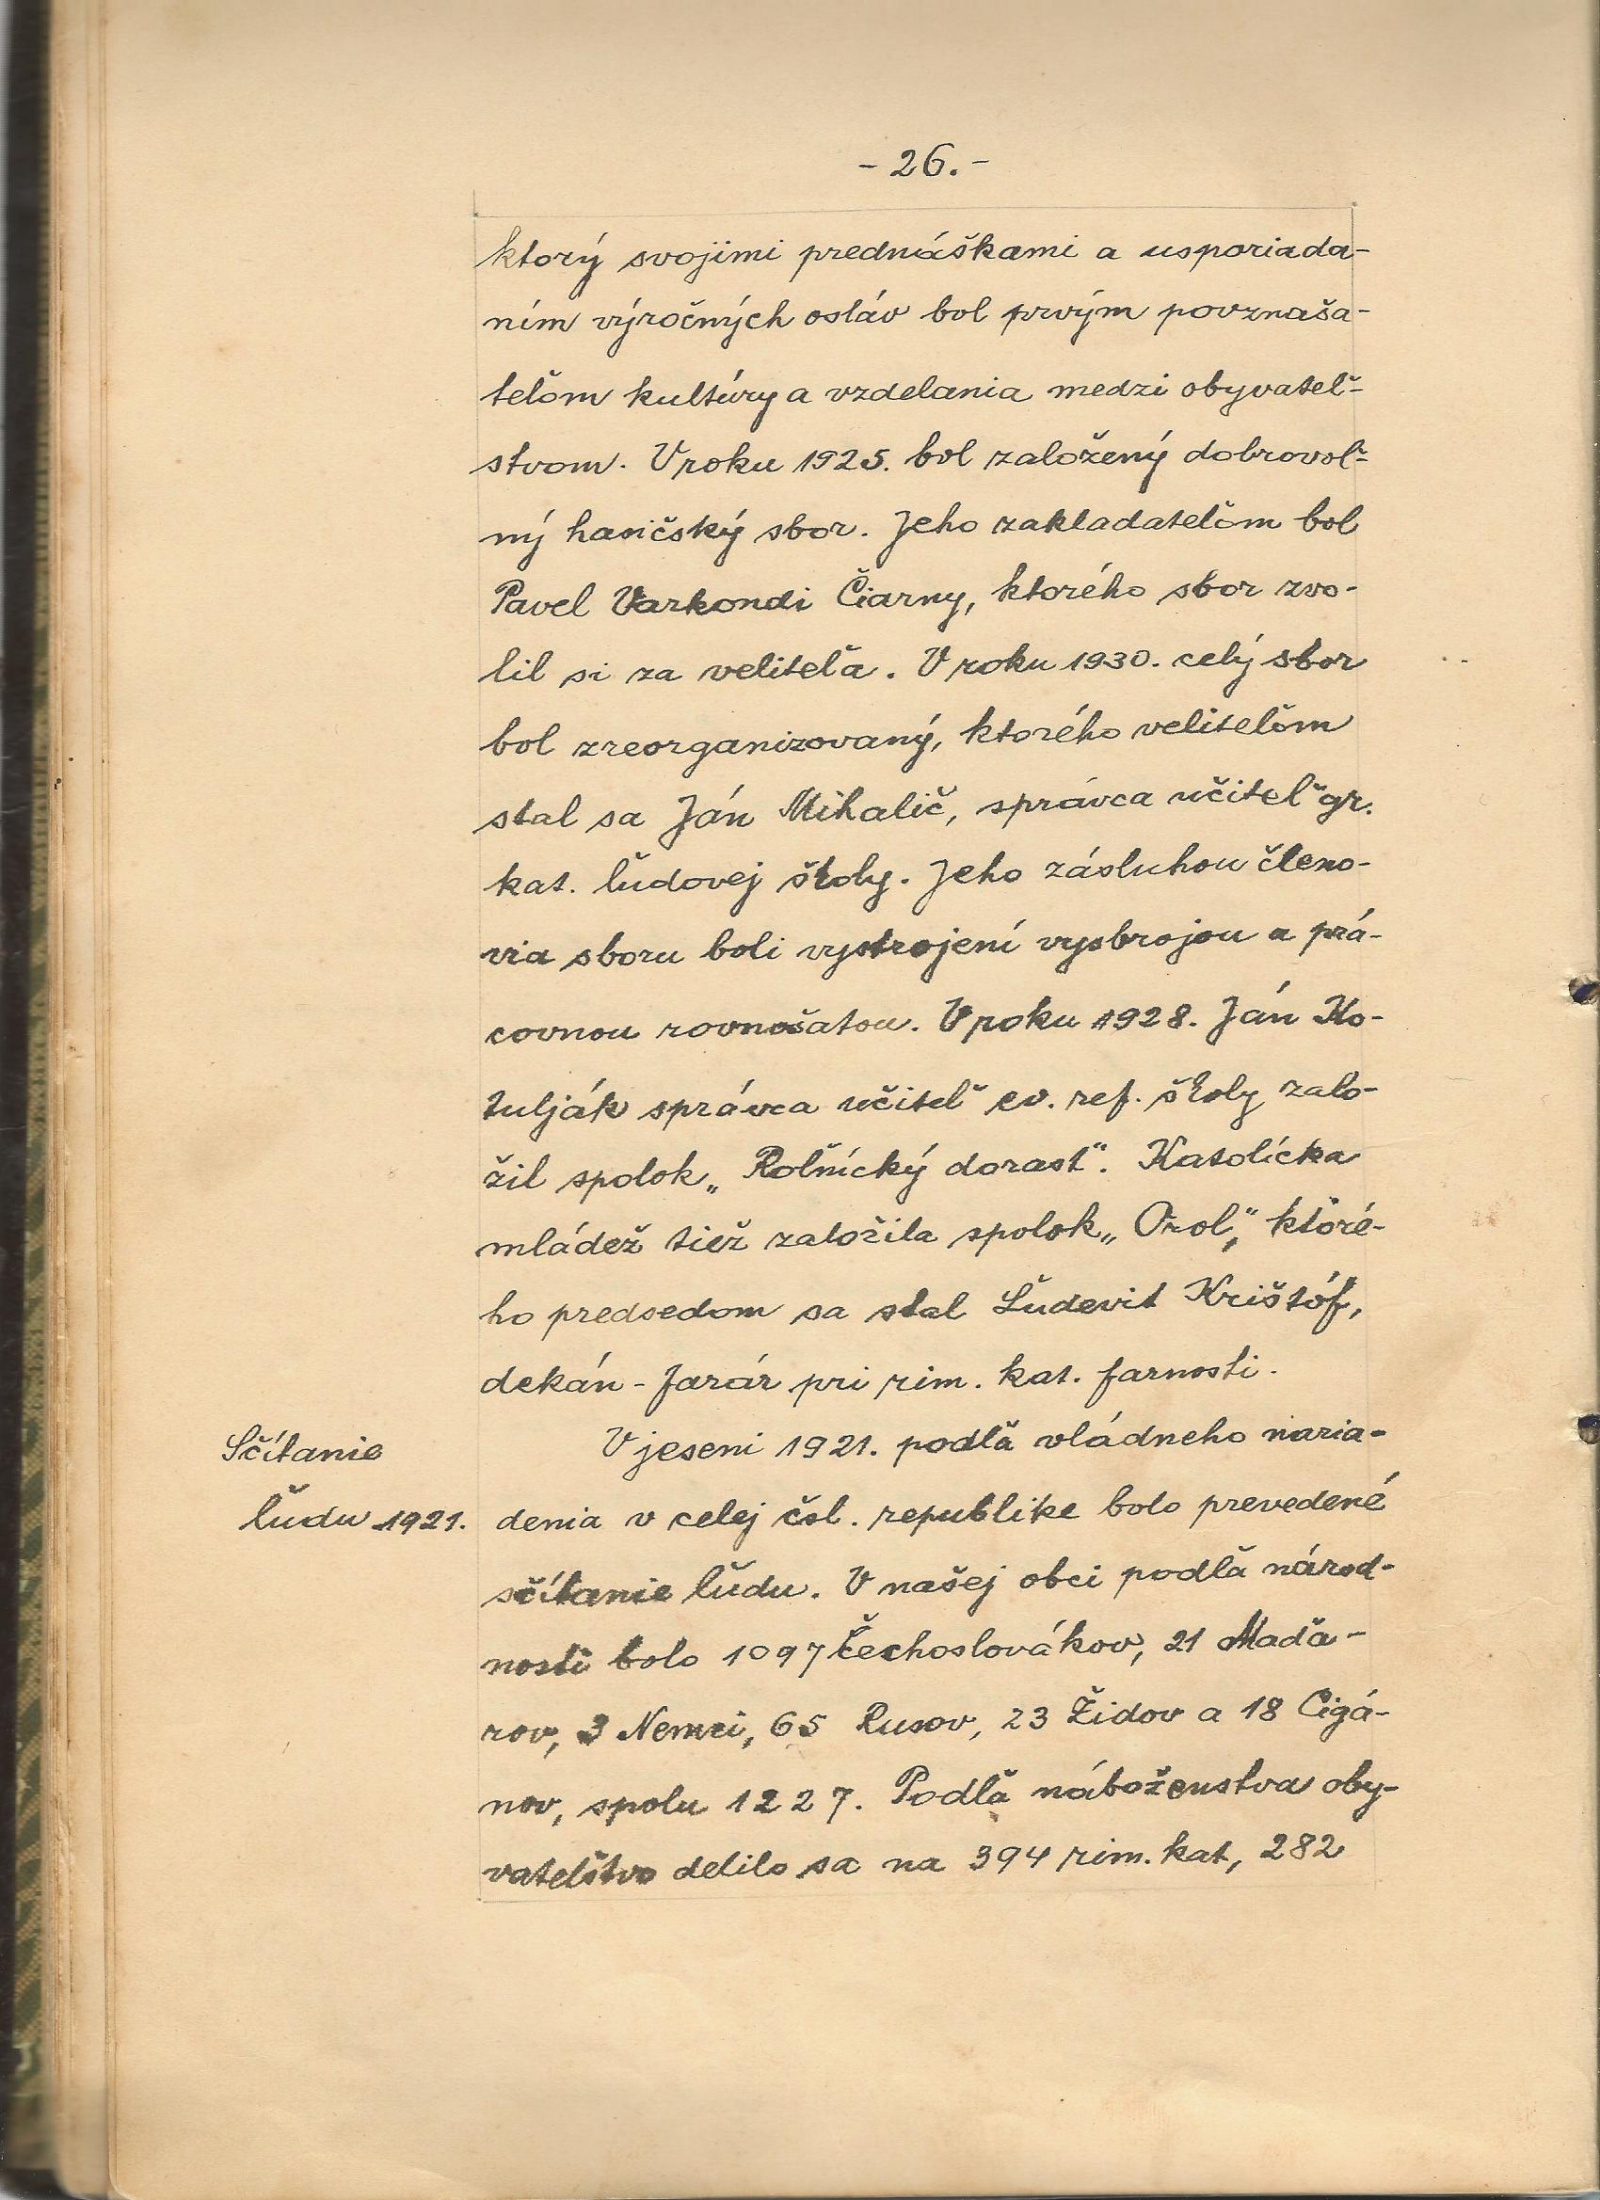 - 26. -
ktorý svojimi prednáškami a usporiada-
ním výročných osláv bol prvým povznaša-
teľom kultúry a vzdelania medzi obyvateľ-
stvom. V roku 1925. bol založený dobrovoľ-
ný hasičský sbor. Jeho zakladateľom bol
Pavel Varkondi Čiarny, ktorého sbor zvo-
lil si za veliteľa. V roku 1930. celý sbor
bol zreorganizovaný, ktorého veliteľom
stal sa Ján Mihalič, správca učiteľ gr.
kat. ľudovej školy. Jeho zásluhou členo-
via sboru boli vystrojení vysbrojou a prá-
covnou rovnošatou. V roku 1928. Ján Ko-
tulják správca učiteľ ev. ref. školy zalo-
žil spolok „Roľnícky dorast“. Katolícka
mládež tiež založila spolok „Orol“, ktoré-
ho predsedom sa stal Ľudevit Krištóf,
dekán - farár pri rim. kat. farnosti.
Sčítanie
ľudu 1921.
V jeseni 1921. podľa vládneho naria-
denia v celej čsl. republike bolo prevedené
sčítanie ľudu. V našej obci podľa národ-
nosti bolo 1097 Čechoslovákov, 21 Maďa-
rov, 3 Nemci, 65 Rusov, 23 Židov a 18 Cigá-
nov, spolu 1227. Podľa náboženstva oby-
vateľstvo delilo sa na 394 rim. kat, 282